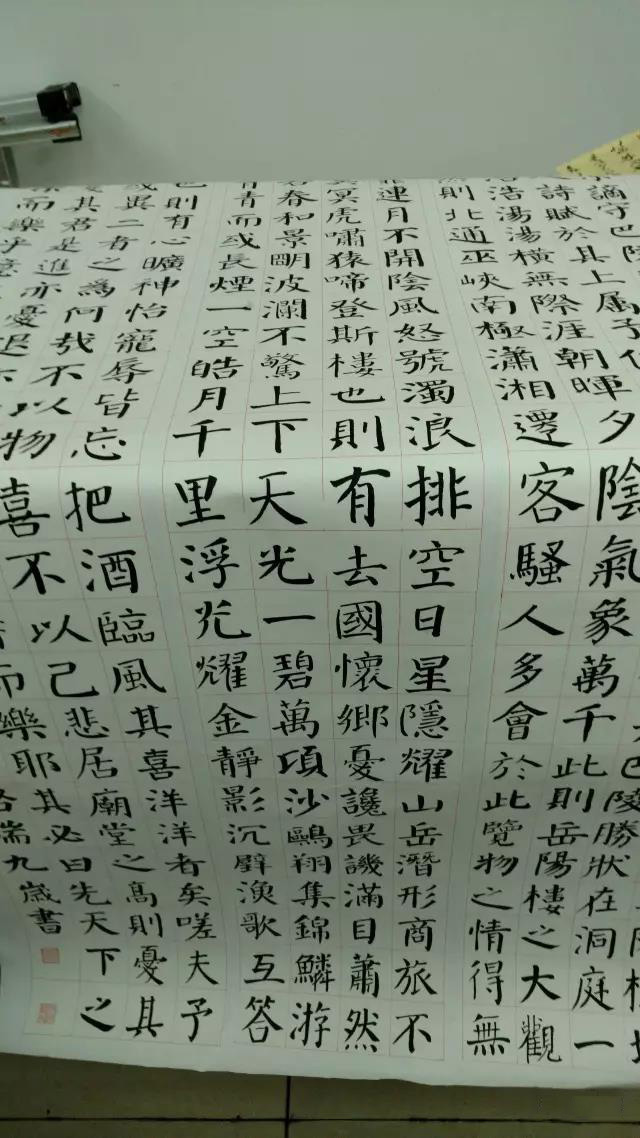 謫守巴
詩賦於其上属予
巴陵勝狀在洞庭一
浩湯湯橫無際涯朝暉夕陰氣象萬千此則岳陽樓之大觀
則北通巫峽南極瀟湘遷客騷人多會於此覽物之情得無
連月不開陰風怒號濁浪排空日星隱耀山岳潛形商旅不
冥虎嘯猿啼登斯樓也則有去國懷鄉憂讒畏譏滿目蕭然
春和景明波瀾不驚上下天光一碧萬頃沙鷗翔集錦鱗游
青而或長煙一空皓月千里浮光耀金靜影沉璧漁歌互答
則有心曠神怡寵辱皆忘把酒臨風其喜洋洋者矣嗟夫予
或異二者之為何哉不以物喜不以己悲居廟堂之高則憂其
其君是進亦憂
而樂耶其必曰先天下之
而樂乎
端九歲書